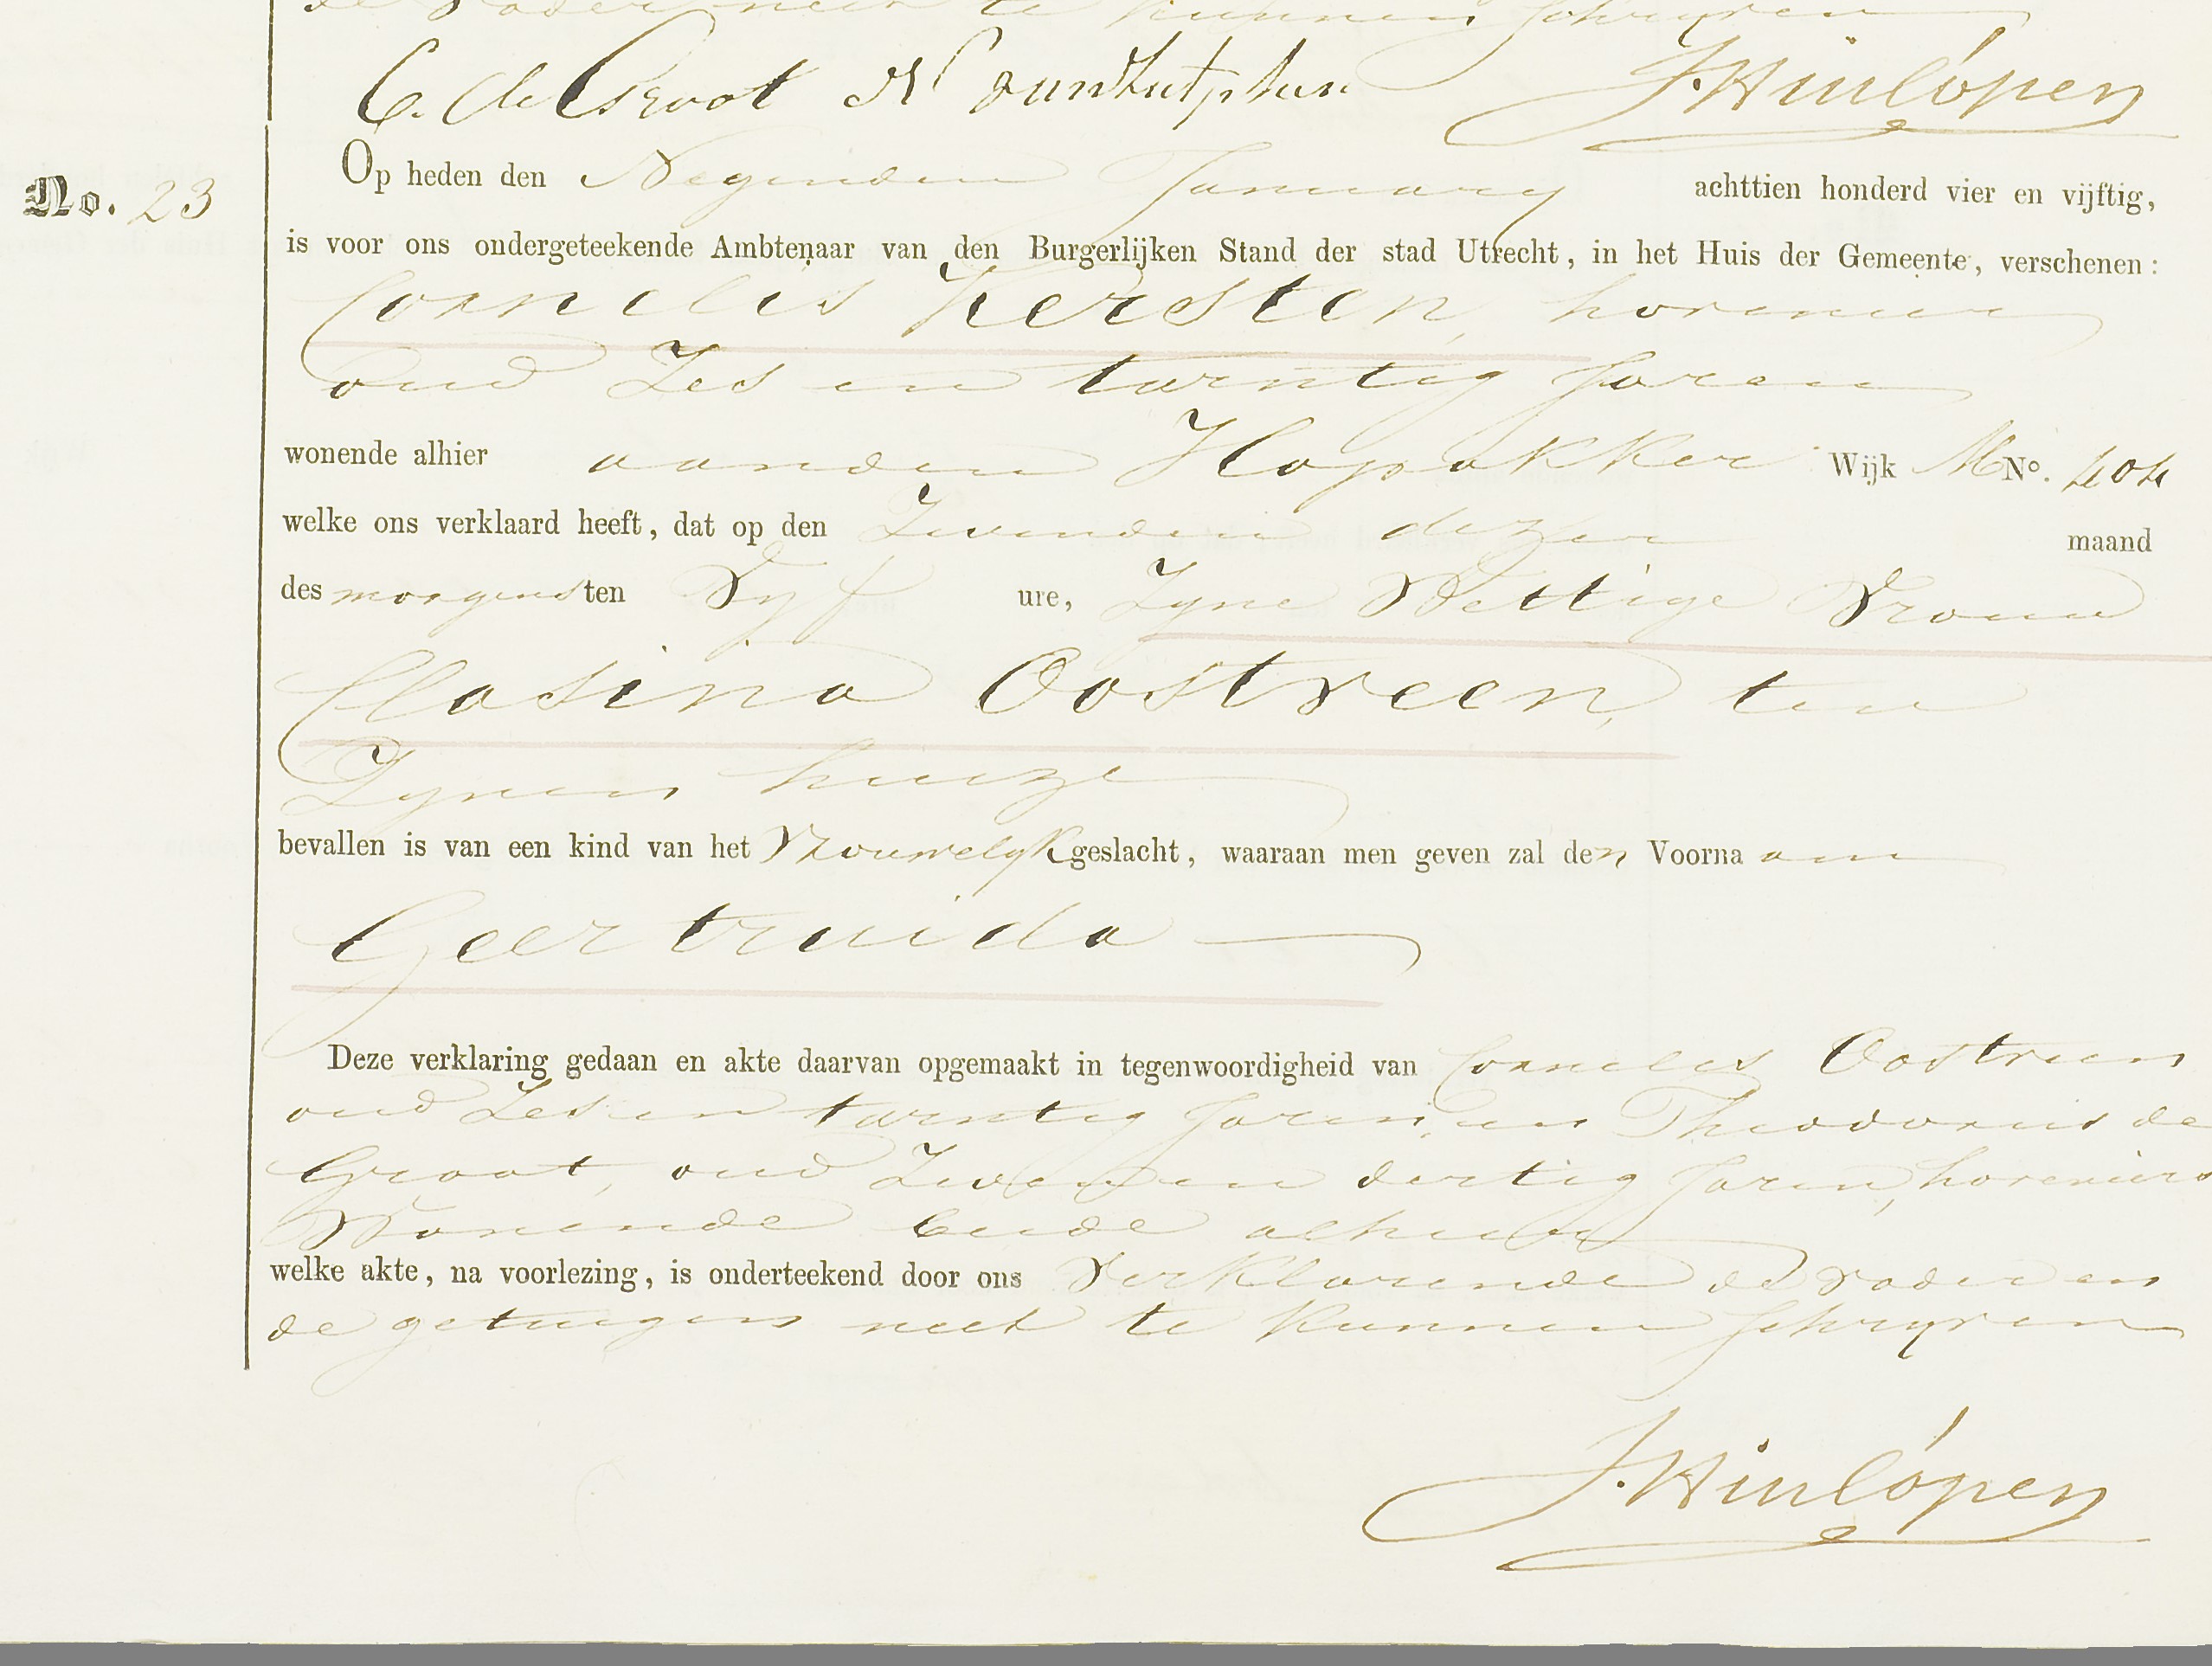 de Vader niet te kunnen schryven
C. de Groot N van Zutphen J. Hinlópen
No. 23
Op heden den Negenden January achttien honderd vier en vijftig,
is voor ons ondergeteekende Ambtenaar van den Burgerlijken Stand der stad Utrecht, in het Huis der Gemeente, verschenen:
Cornelis Kersten, hovenier
oud Zes en twintig Jaren
wonende alhier aanden Hopakker Wijk M No. 404
welke ons verklaard heeft, dat op den Zevenden dezer maand
des morgens ten Vyf ure, Zyne Wettige Vrouw
Clasina Oostveen, ten
Zynen huize
bevallen is van een kind van het Vrouwelyk geslacht, waaraan men geven zal den Voornaam
Geertruida
Deze verklaring gedaan en akte daarvan opgemaakt in tegenwoordigheid van Cornelis Oostveen
oud Zes en twintig Jaren, en Theodorus de
Groot, oud Zeven en dertig Jaren, hoveniers
Wonende beide alhier
welke akte, na voorlezing, is onderteekend door ons Verklarende de vader en
de getuigen niet te kunnen schryven
J. Hinlópen